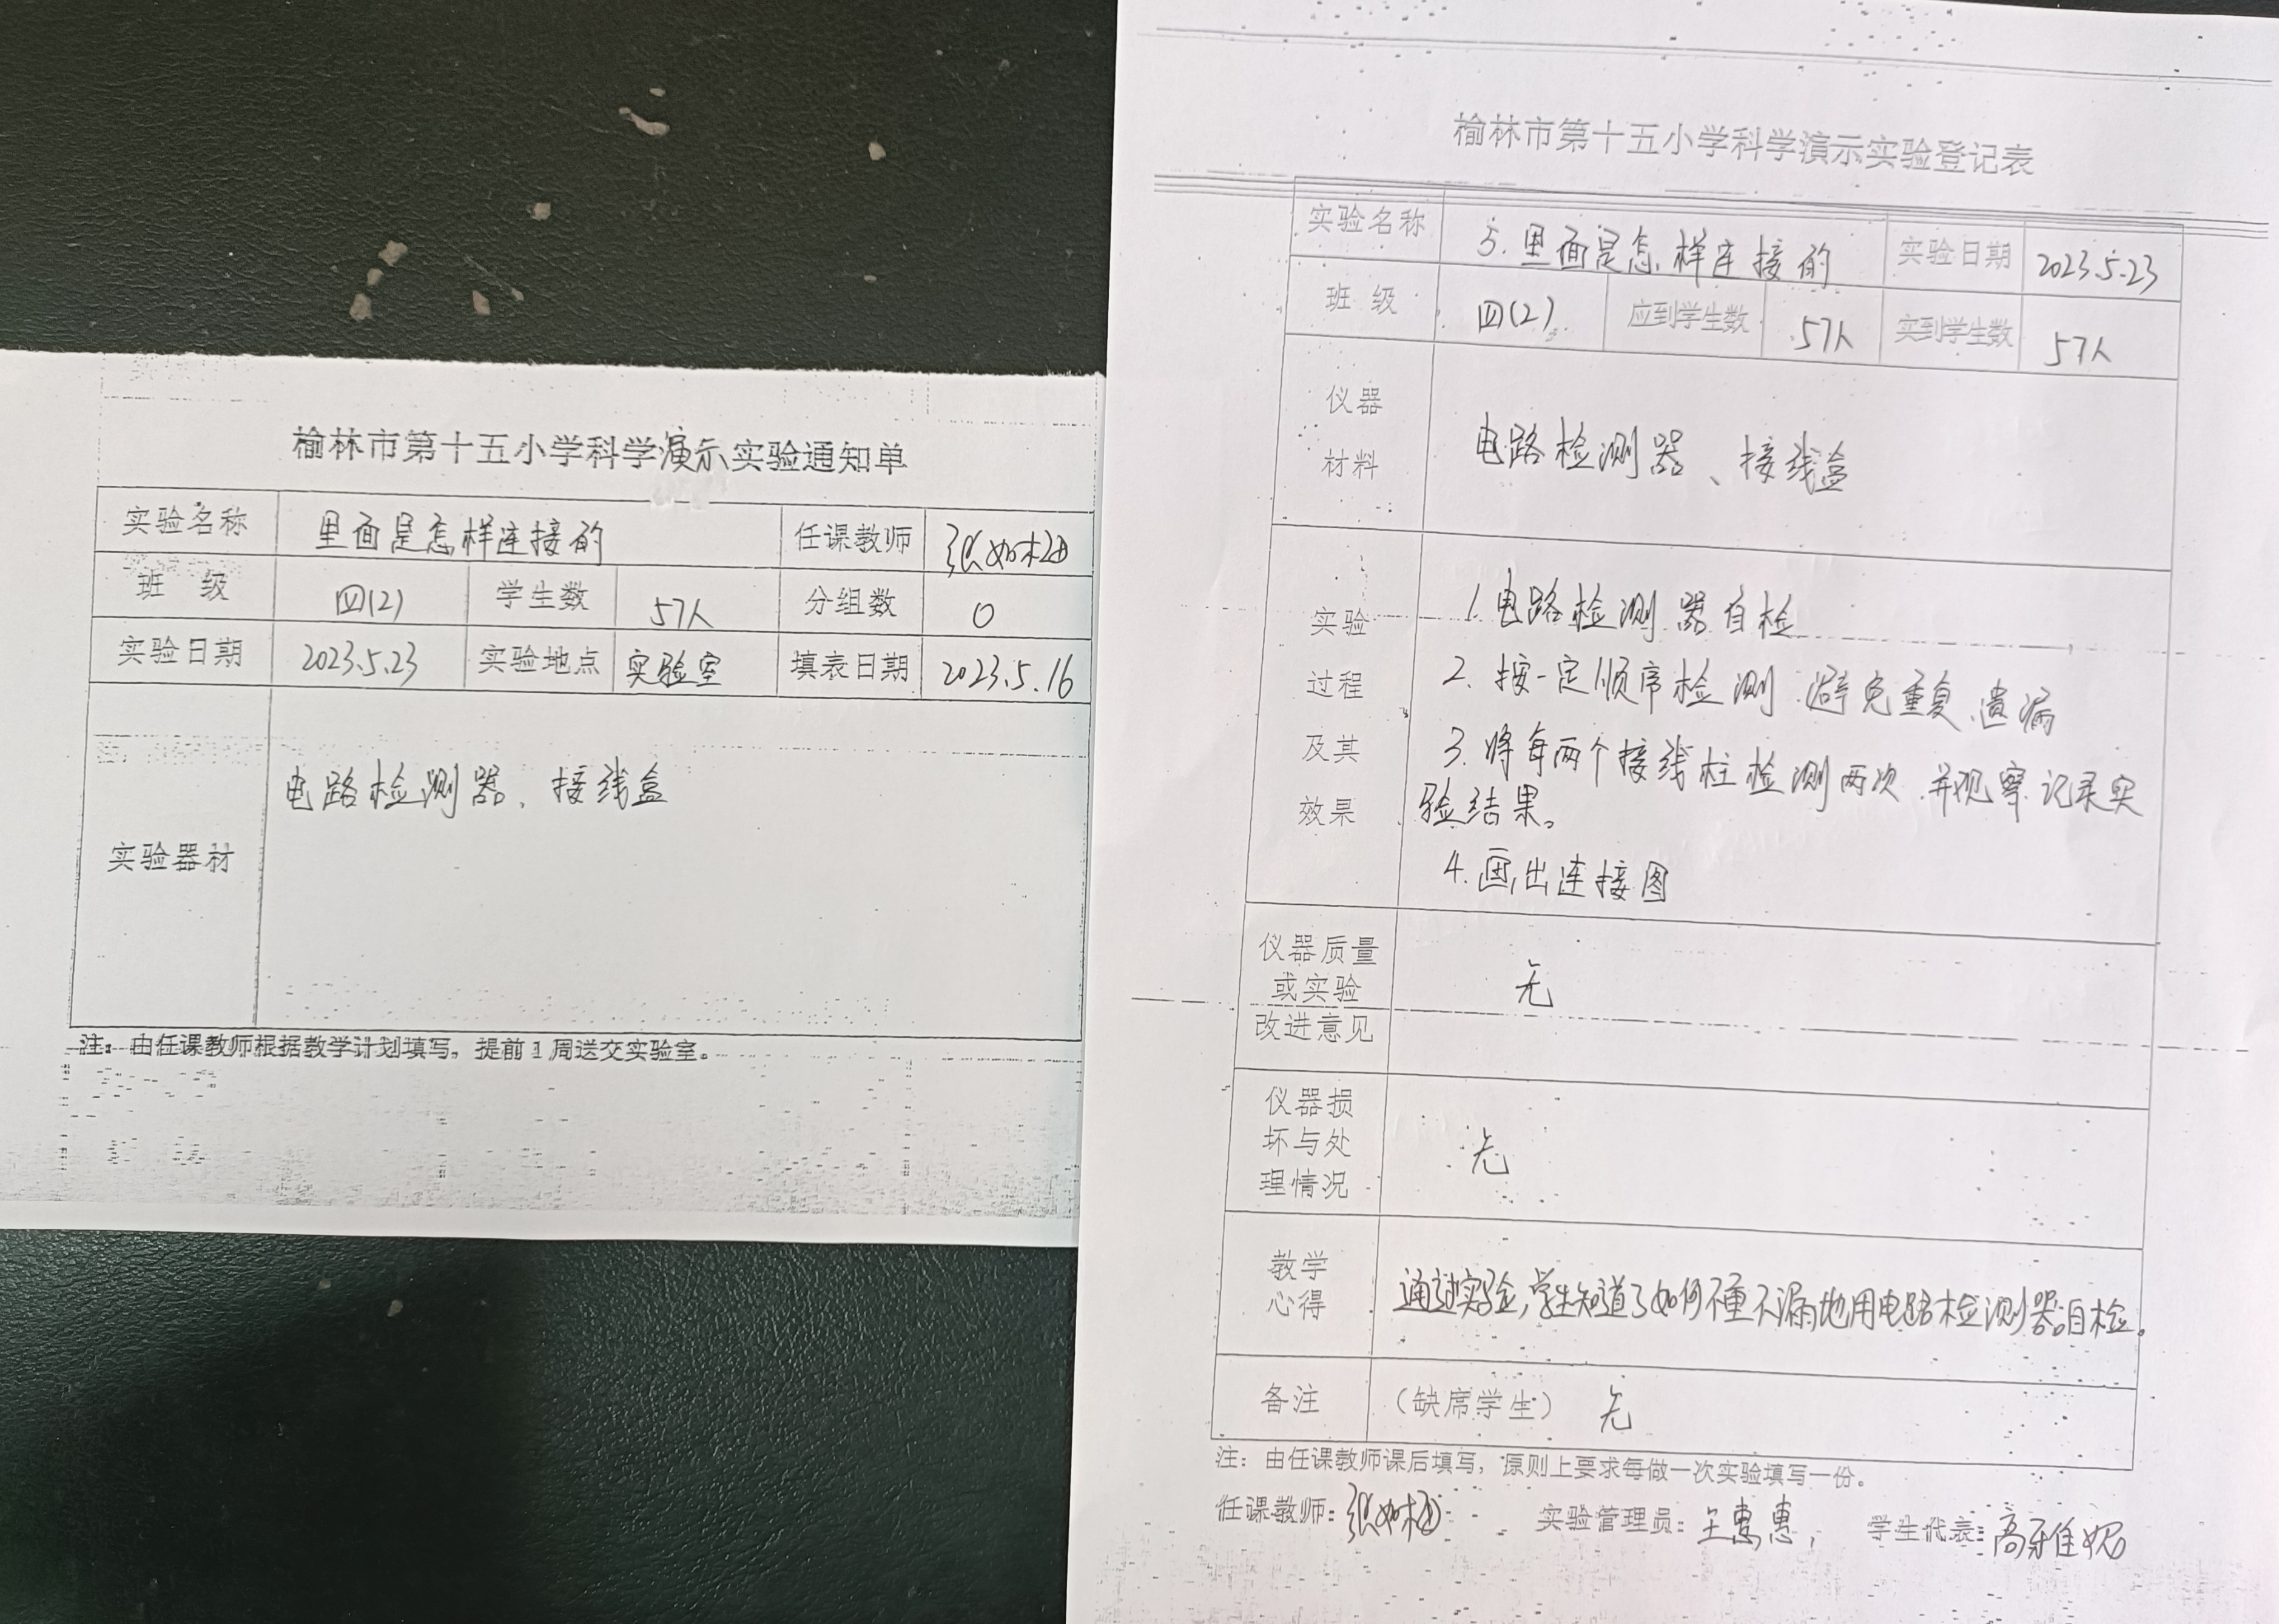 榆林市第十五小学科学演示实验通知单
实验名称 里面是怎样连接的 任课教师 张如
班 级 四(2) 学生数 57人 分组数 0
实验日期 2023.5.23 实验地点 实验室 填表日期 2023.5.16
实验器材 电路检测器、接线盒
注：由任课教师根据教学计划填写，提前1周送交实验室。
榆林市第十五小学科学演示实验登记表
实验名称 5.里面是怎样连接的 实验日期 2023.5.23
班 级 四(2) 应到学生数 57人 实到学生数 57人
仪器
材料
电路检测器、接线盒
实验
过程
及其
效果
1.电路检测器自检
2.按一定顺序检测.避免重复、遗漏
3.将每两个接线柱检测两次.并观察记录实
验结果。
4.画出连接图
仪器质量
或实验
改进意见
无
仪器损
坏与处
理情况
无
教学
心得
通过实验,学生知道了如何不重不漏地用电路检测器自检。
备注 （缺席学生） 无
注：由任课教师课后填写，原则上要求每做一次实验填写一份。
任课教师：张如 实验管理员：王惠惠， 学生代表：高雅妮